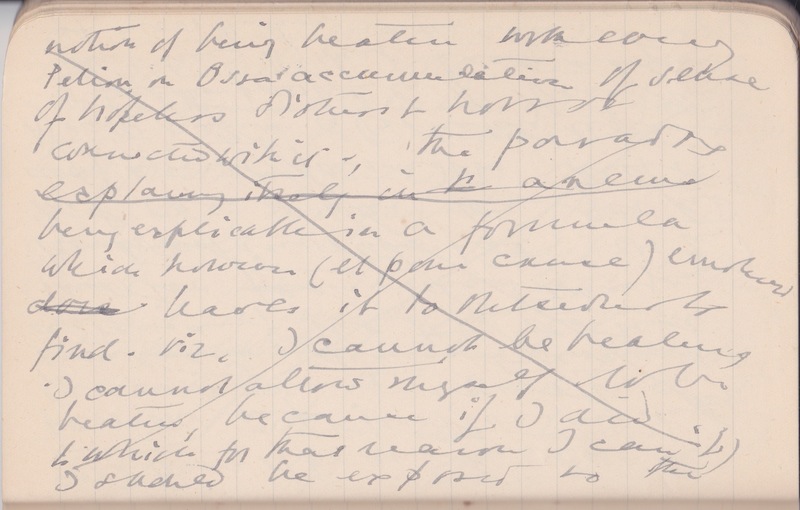 notion of being beaten
Pelion on Ossa accumulation of sense
of hopeless distress & horror
connected with it, the paradox
explaining itself in
being explicable in a formula
which however (et pour cause)
leaves it to
find. viz. I cannot be healing
I cannot allow myself to be
beaten, because if I did
(which for that reason I can't)
I should be exposed to the